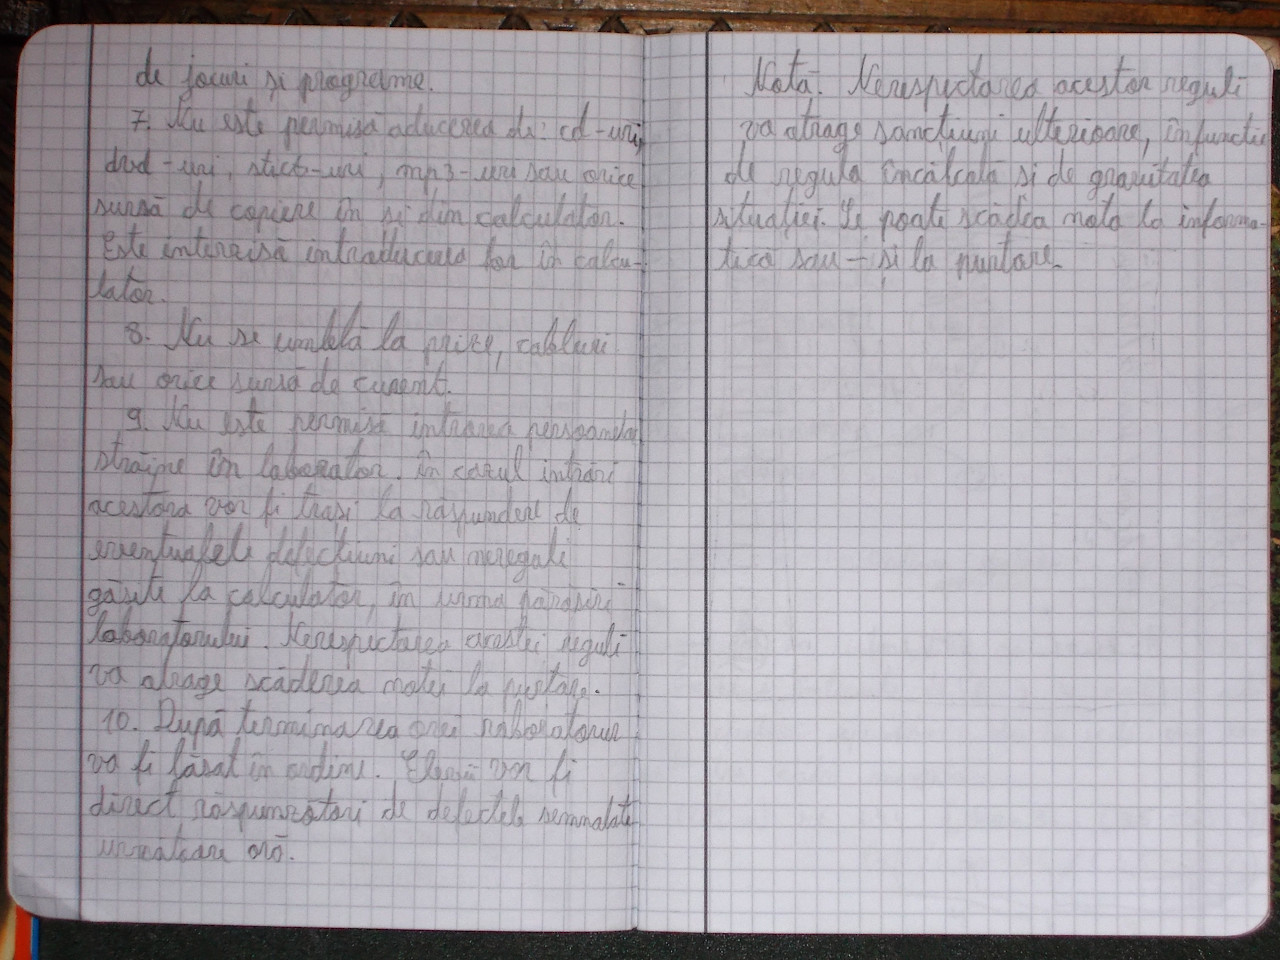 de jocuri și programe.
7. Nu este permisă aducerea de: cd-uri,
dvd-uri, stick-uri, mp3-uri sau orice
sursă de copiere în și din calculator.
Este interzisă introducerea lor în calcu-
lator.
8. Nu se umblă la prize, cabluri
sau orice sursă de curent.
9. Nu este permisă intrarea persoanelor
străine în laborator. În cazul intrări
acestora vor fi trași la răspundere de
eventualele defecțiuni sau nereguli
găsite la calculator, în urma părăsiri
laboratorului. Nerespectarea acestei reguli
va atrage scăderea notei la purtare.
10. După terminarea orei laboratorul
va fi lăsat în ordine. Elevii vor fi
direct răspunzători de defectele semnalate
următoare oră.
Notă. Nerespectarea acestor reguli
va atrage sancțiuni ulterioare, în funcție
de regula încălcată si de gravitatea
situației. Se poate scădea nota la informa-
tică sau - și la purtare.